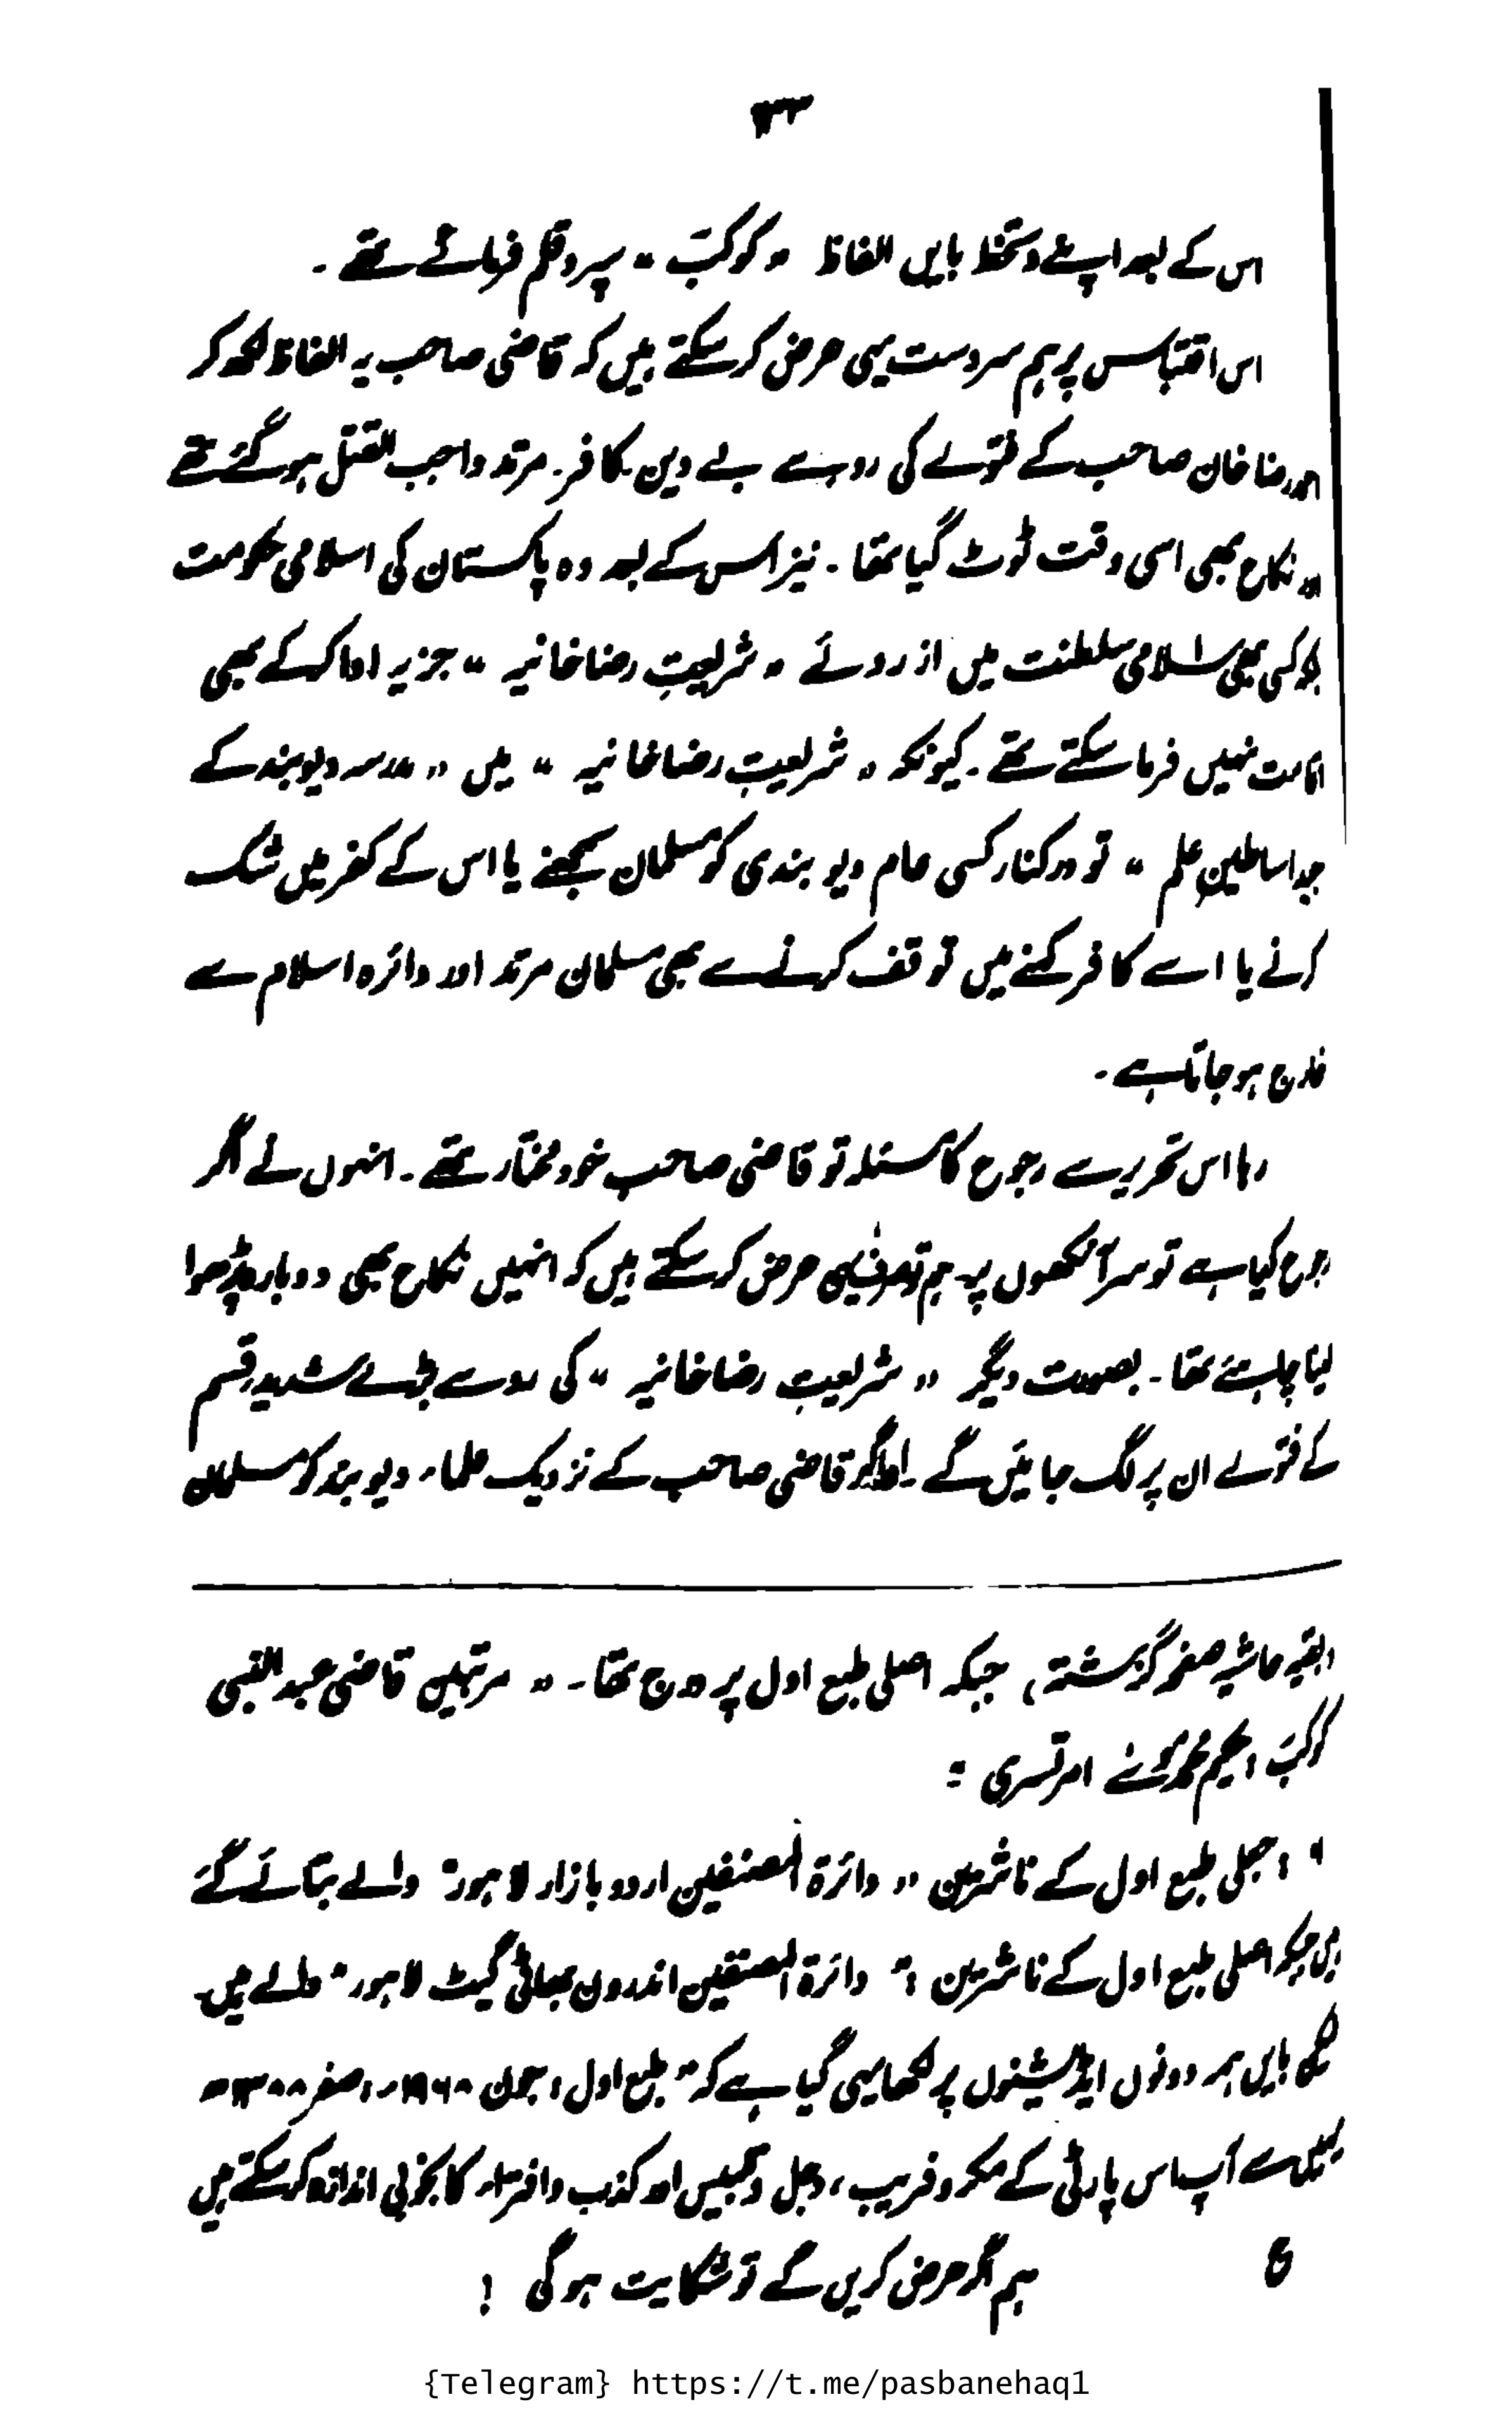 ۳۳
اس کے بعد اپنے دستخط بایں الفاظ " کوکبؔ " سپردِ قلم فرمائے تھے ۔
اس اقتباس پر ہم سردست یہی عرض کر سکتے ہیں کہ قاضی صاحب یہ الفاظ لکھ کر
احمد رضا خان صاحب کے فتوے کی رو سے بے دین، کافر۔ مرتد واجب القتل ہو گئے تھے
اور نکاح بھی اسی وقت ٹوٹ گیا تھا ۔ نیز اس کے بعد وہ پاکستان کی اسلامی حکومت
کسی بھی اسلامی سلطنت میں از روئے " شریعتِ رضاخانیہ " جزیہ ادا کر کے بھی
اقامت نہیں فرما سکتے تھے ۔ کیونکہ " شریعتِ رضاخانیہ " میں " مدرسہ دیوبند کے
اساطینِ علم " تو درکنار کسی عام دیوبندی کو مسلمان سمجھنے یا اس کے کفر میں شک
کرنے یا اسے کافر کہنے میں توقف کرنے سے بھی مسلمان مرتد اور دائرہ اسلام سے
خارج ہو جاتا ہے ۔
رہا اس تحریر سے رجوع کا مسئلہ تو قاضی صاحب خود مختار تھے ۔ انہوں نے اگر
رجوع کیا ہے تو سر آنکھوں پر ۔ ہم تو صرف یہی عرض کر سکتے ہیں کہ انہیں نکاح بھی دوبارہ پڑھوا
لینا چاہئے تھا ۔ بصورت دیگر " شریعتِ رضاخانیہ " کی رو سے بڑے شدید قسم
کے فتوے ان پر لگ جائیں گے ۔ اور اگر قاضی صاحب کے نزدیک علماء دیوبند کو مسلمان
(بقیہ حاشیہ صفحہ گزشتہ) جبکہ اصلی طبع اول پر درج تھا ۔ " مرتبین قاضی عبدالنبی
کوکبؔ ، حکیم محمد موسیٰ امرتسری :
۹ ، جعلی طبع اول کے ناشرین " دائرۃ المصنفین اردو بازار لاہور " والے بتائے گئے
ہیں جبکہ اصلی طبع اول کے ناشرین " دائرۃ المصنفین اندرون بھاٹی گیٹ لاہور " والے ہیں۔
بایں ہمہ دونوں ایڈیشنوں پر لکھا یہی گیا ہے کہ " طبع اول ، جون ۱۹۶۸ء ، صفر ۱۳۸۸ھ
سے آپ اس پارٹی کے مکر و فریب ، دجل و تلبیس اور کذب و افتراء کا بخوبی اندازہ کر سکتے ہیں
ع ہم اگر عرض کریں گے تو شکایت ہو گی !
{Telegram} https://t.me/pasbanehaq1